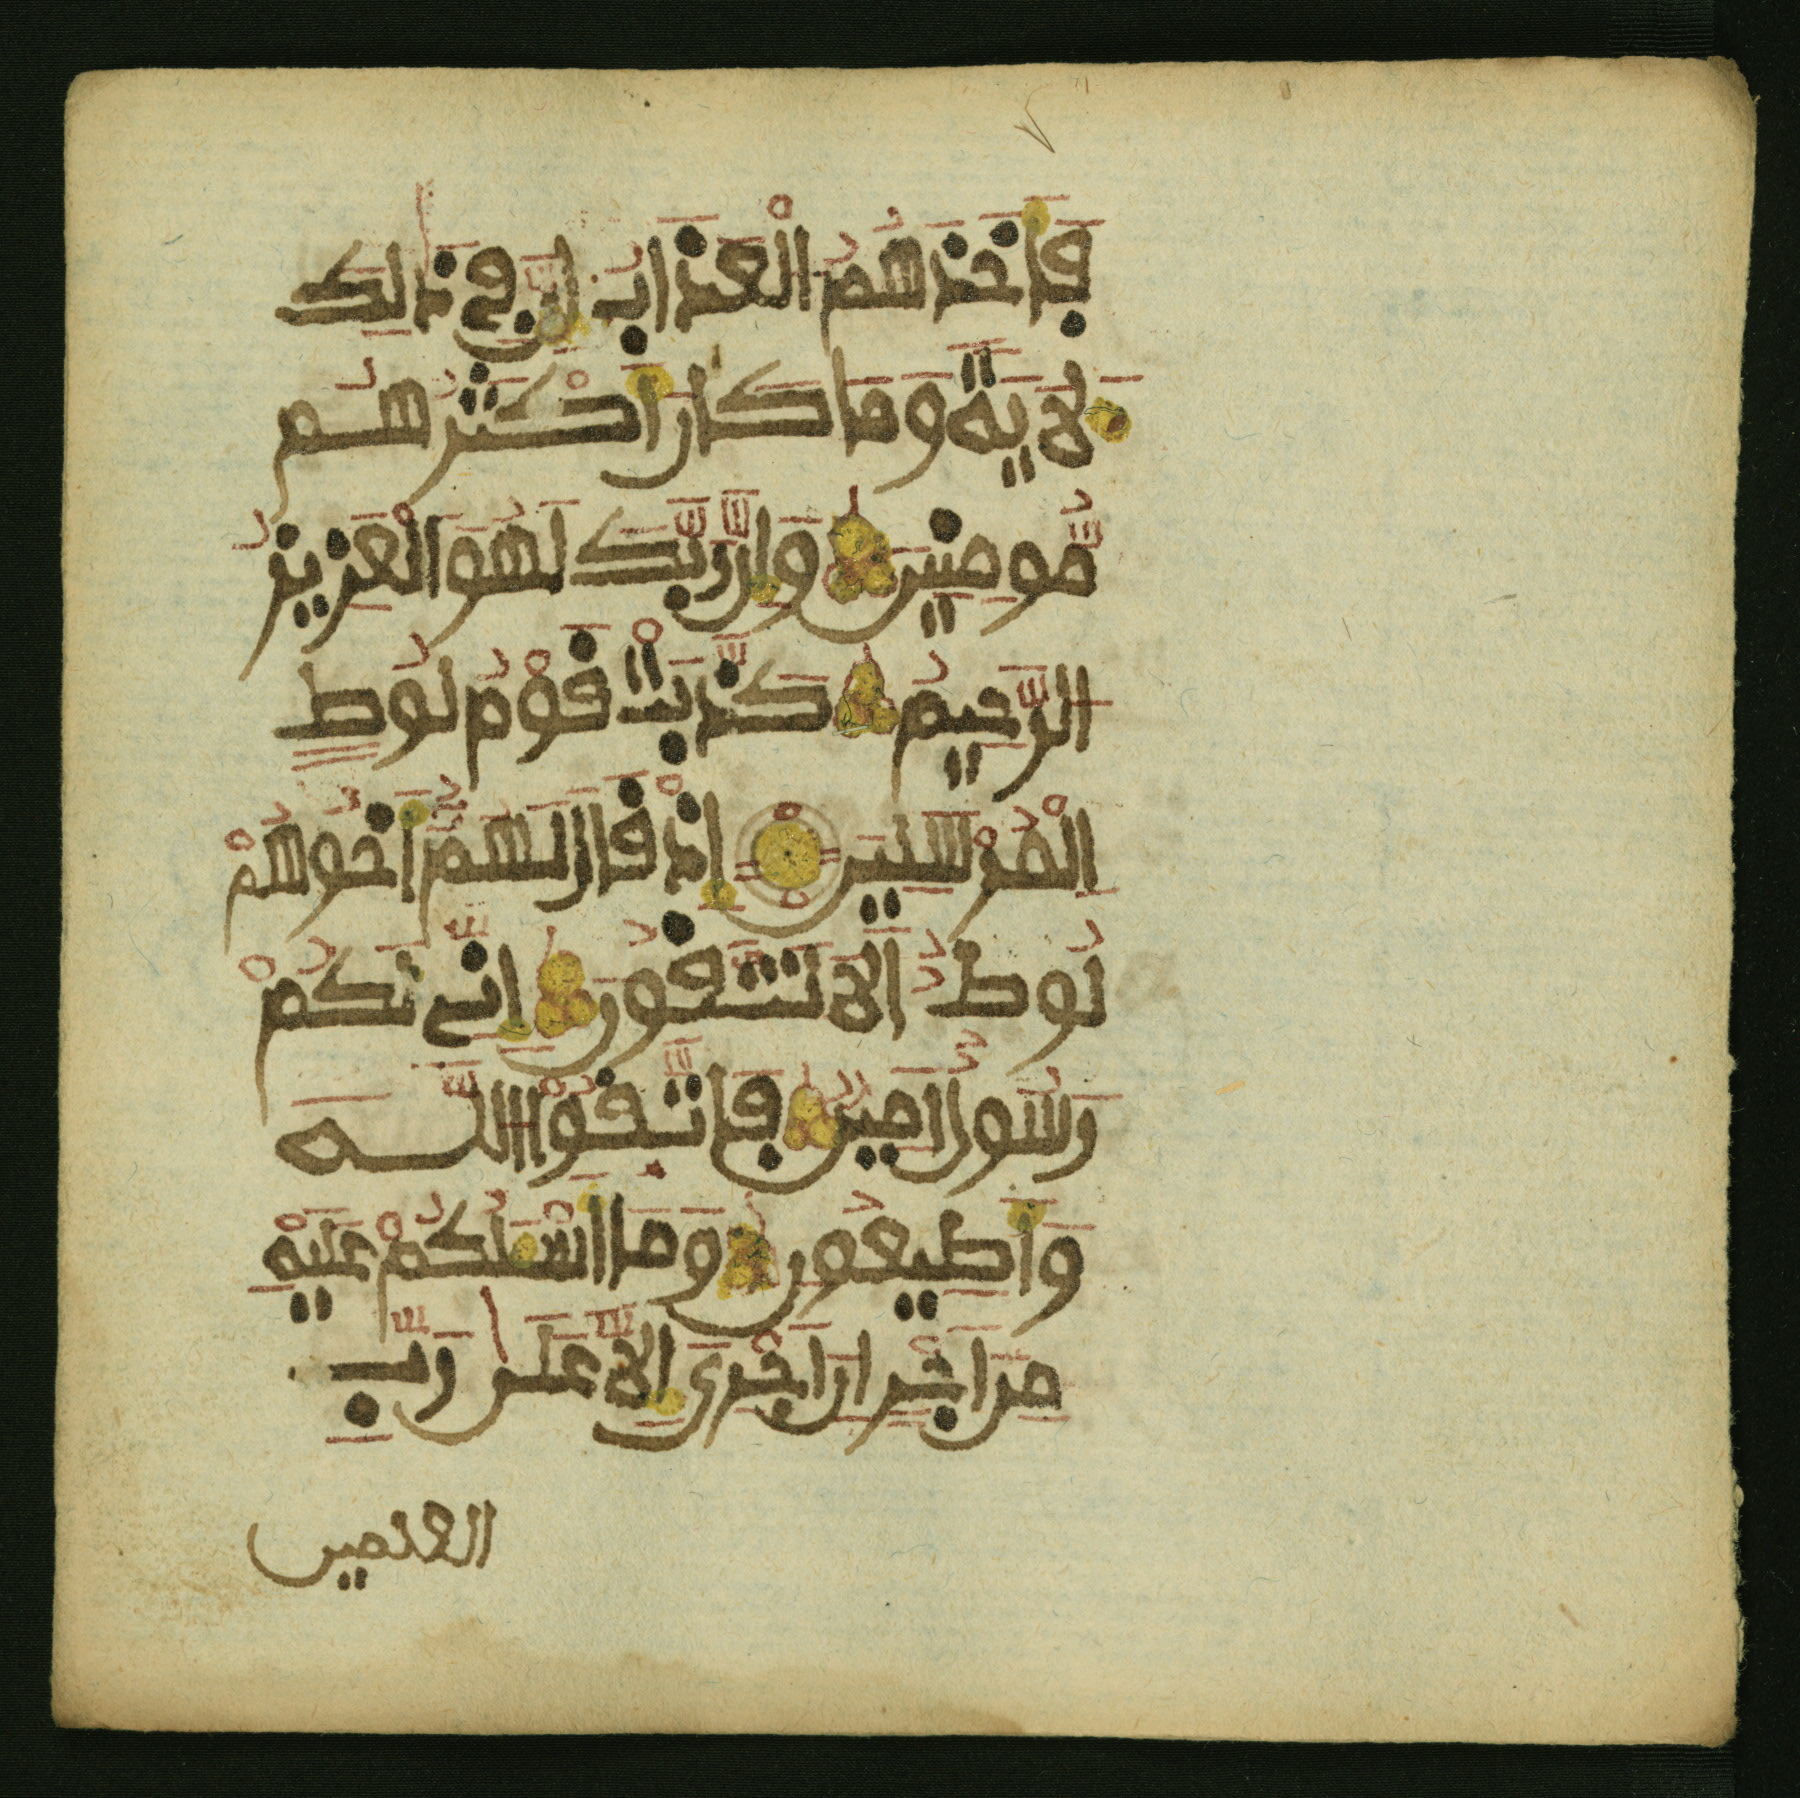 فَأَخَذَهُمُ الْعَذَابُ إِنَّ فِي ذَٰلِكَ
لَأَيَةً وَمَا كَانَ أَكْثَرُهُم
مُّومِنِينَ وَإِنَّ رَبَّكَ لَهُوَ الْعَزِيزُ
الرَّحِيمُ كَذَّبَتْ قَوْمُ لُوطٍ
الْمُرْسَلِينَ إِذْ قَالَ لَهُمُ أَخُوهُمْ
لُوطٌ اَلَا تَتَّقُونَ إِنِّي لَكُمْ
رَسُولٌ اَمِينٌ فَاتَّقُوا اللَّهَ
وَأَطِيعُونِ وَمَا أَسْـَٔلُكُمْ عَلَيْهِ
مِنَ اَجْرٍ اِنَ اَجْرِيَ إِلَّا عَلَىٰ رَبِّ
العلمين